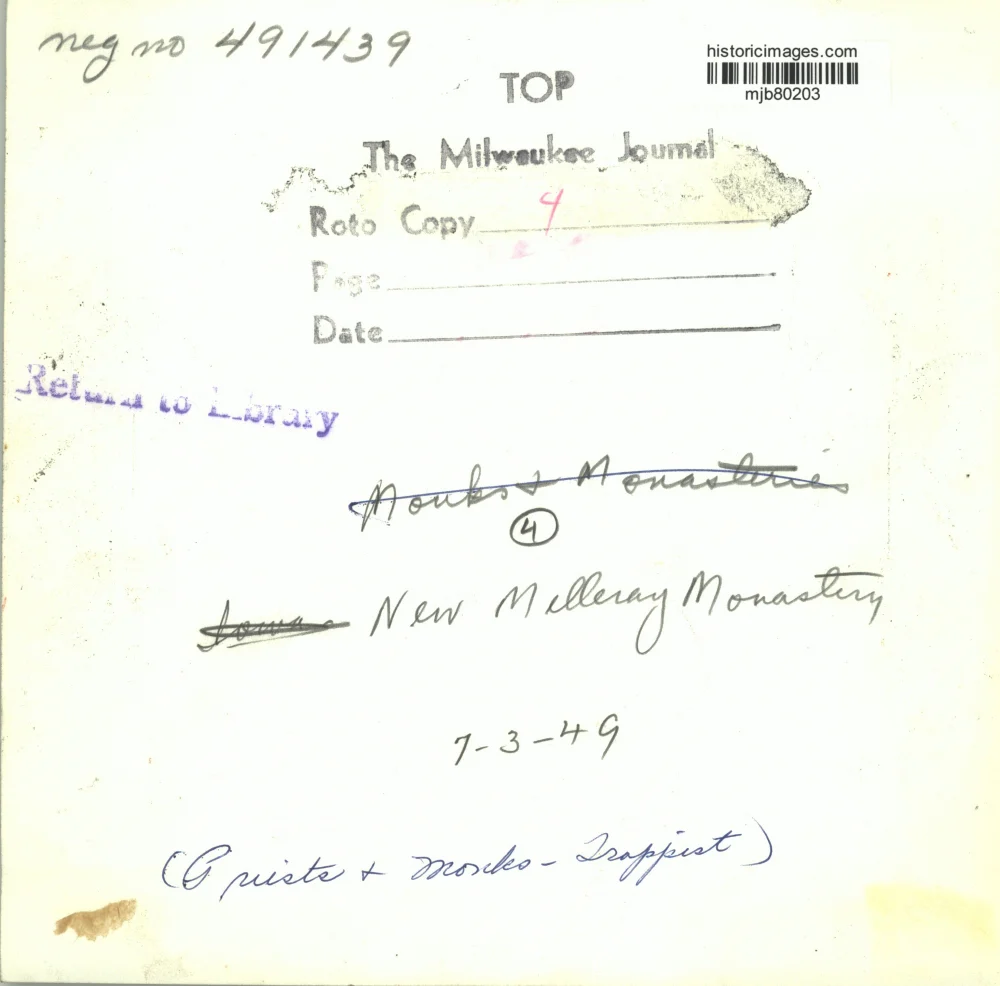 neg no 491439
historicimages.com
mjb80203
TOP
The Milwaukee Journal
Roto Copy 4
Page
Date
Return to Library
Monks & Monasteries
4
Iowa New Melleray Monastery
7-3-49
(Priests & Monks - Trappist)